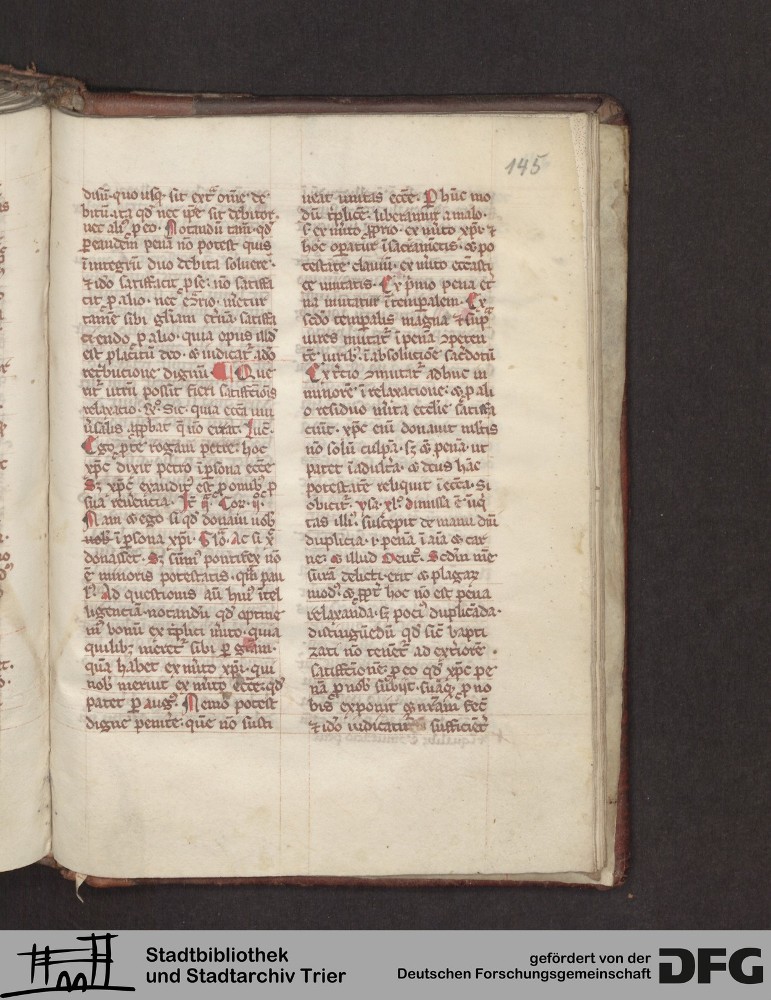 145
disiũ · quo usq᷒ · sit ext᷑ om̃e de
bitũ · ita qd nec ip̃e sit debitor ·
nec ali᷒ ꝑ eo · Notandũ tam̃ · qd
ꝑ eandem penã nõ potest quis
ĩntegrũ duo debita soluere ·
⁊ ido satisfacit ꝑ se · nõ satisfa
cit ꝑ alio · nec
tam̃e sibi gl̃iam et̃nã · satisfa
ciendo ꝑ alio · quia opus illd
est placitũ deo · ⁊ iudicat᷑ · adõ
ret̃butione dignũ · Que
rit᷑ utrũ possit fieri satisfc̃iois
relaxatio · Rº · Sic · quia ecc̃a uni
ũsalis app̃bat q̃ nõ errat · luc̃ ·
Ego ꝓ te rogaui petre · hoc
xp̃c dixit petro ĩ ꝑsona ecc̃e
Sꝫ xp̃c exaudit᷒ est ꝓ omib᷒ ꝓ
sua reũencia · It̃ · Cor · ij ·
Nam ⁊ ego si qd donaui uob̃
uob̃ ĩ ꝑsona xp̃i · Glõ · Ac si x̃
donasset · Sꝫ sũm᷒ pontifex nõ
ẽ minoris potestatis · qm̃ pau
l᷒ · Ad questionis aũ hui᷒ ĩtel
ligenciã · notandũ qd optine
m᷒ bonũ ex t̃plici m̃ito · quia
quilibꝫ meret᷑ sibi ꝑ gr̃am ·
quã habet ex m̃ito xp̃i · qui
nob̃ meruit ex m̃ito ecc̃e · qd
patet ꝑ aug᷒ · Nemo potest
digne penit̃e · quẽ nõ susti
neat unitas ecc̃e · P hũc mo
dũ t̃plicẽ · liberamur a malo ·
s · ex m̃ito ꝓprio · ex m̃ito xp̃i · ⁊
hoc operatur ĩ sacram̃tis · ⁊ po
testate clauiũ · ex m̃ito ecc̃asti
ce unitatis · Ex p̃mo pena et̃
na mutatur ĩ tempalem · Ex
scd̃o tempalis magna ⁊ sup̃
uires mutat᷑ ĩ penã ꝯpeten
tẽ uirib᷒ · ĩ absolutiõe sacdotũ
Ex t̃cio ꝯmutat᷑ adhuc in
minorẽ ĩ relaxacione · ⁊ ꝑ ali
o residuo m̃ita ecclẽ satisfa
ciũt · xp̃c eiũ donauit iustis
nõ solũ culpã · sꝫ ⁊ penã · ut
patet ĩ adulťa · ⁊ deus hãc
potestatẽ reliquit ĩ ecc̃a · Si
obicit᷑ · ysa · xlº · dimissa ẽ iniq
tas illi᷒ · suscepit de manu dñi
duplicia · i · penã ĩ aĩa ⁊ car
ne · ⁊ illud Deut̃ · Scdm me
surã delicti · erit ⁊ plagar᷑
mod᷒ · ⁊ ꝓpt̃ hoc nõ est pena
relaxanda · sꝫ poci᷒ duplicãda ·
distinguẽdũ qd sic̃ bapti
zati nõ tenẽt᷑ ad ext̃iorẽ ·
satisfc̃ionẽ · ꝑ eo qd xp̃c pe
nã ꝓ nob̃ subijt · suãqꝫ ꝓ no
bis exponit ⁊ nr̃am fec̃
⁊ ido iudicatur sufficient̃
Stadtbibliothek
und Stadtarchiv Trier
gefördert von der
Deutschen Forschungsgemeinschaft
DFG